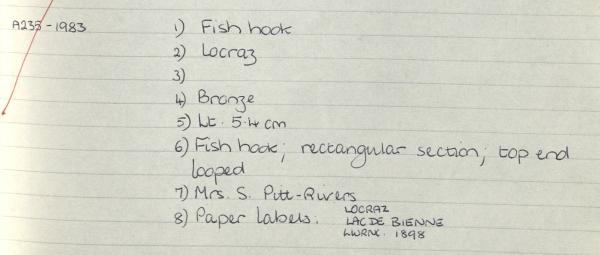 A235-1983
1) Fish hook
2) Locraz
3)
4) Bronze
5) Lt. 5.4 cm
6) Fish hook; rectangular section; top end
looped
7) Mrs. S. Pitt-Rivers
8) Paper labels: LOCRAZ
LAC DE BIENNE
1898